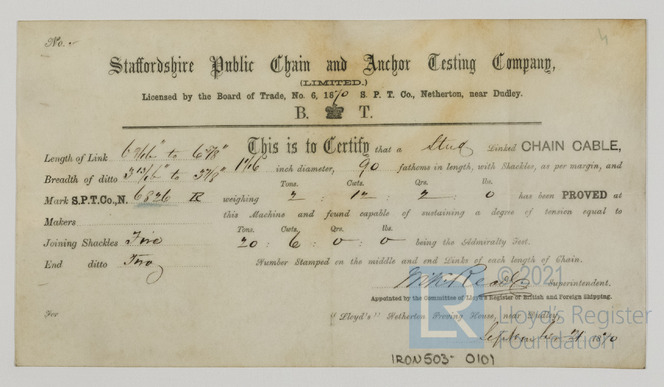 No.
Staffordshire Public Chain and Anchor Testing Company,
(LIMITED.)
Licensed by the Board of Trade, No. 6, 1870 S. P. T. Co., Netherton, near Dudley.
B. T.
This is to Certify that a Stud Linked CHAIN CABLE,
Length of Link to 6 7/8"
1 1/16 inch diameter, 90 fathoms in length, with Shackles, as per margin, and
Breadth of ditto to 3 7/8"
Tons. Cwts. Qrs. lbs.
Mark S.P.T.Co., N. 6826 R weighing 2 : 12 : 2 : 0 has been PROVED at
Makers this Machine and found capable of sustaining a degree of tension equal to
Tons. Cwts. Qrs. lbs.
Joining Shackles Five 20 : 6 : 0 : 0 being the Admiralty Test.
End ditto Two Number Stamped on the middle and end Links of each length of Chain.
Superintendent.
Appointed by the Committee of Lloyd's Register of British and Foreign Shipping.
For "Lloyd's" Netherton Proving House, near Dudley,
September 21 1870
IRON503-0101
© 2021
LR
Lloyd's Register
Foundation